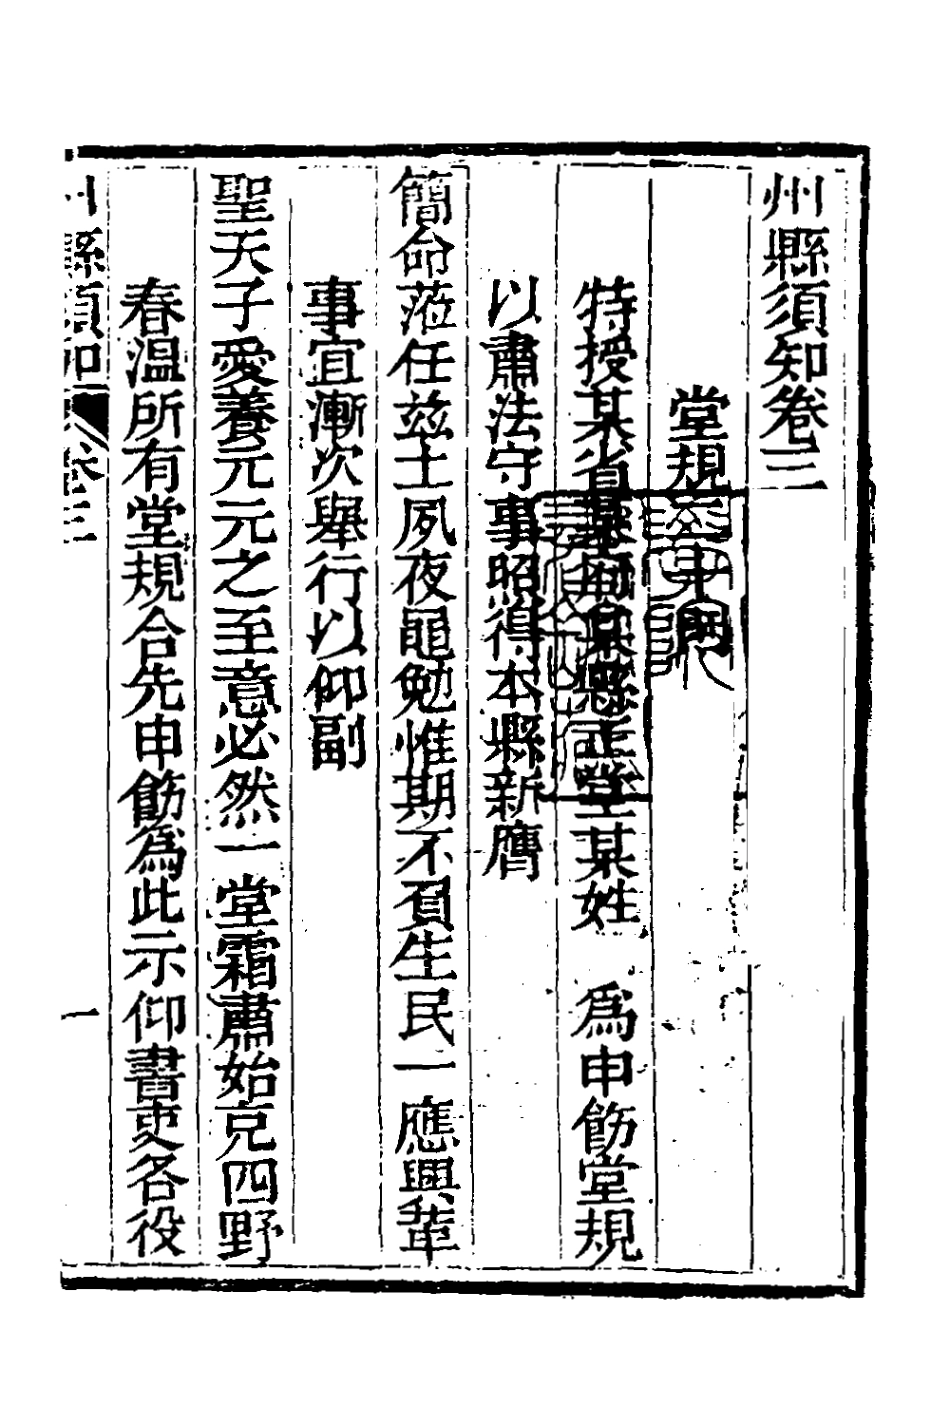 州縣須知卷三
堂規
特授某省某府某縣正堂某姓　爲申飭堂規
以肅法守事昭得本縣新膺
簡命蒞任兹土夙夜黽勉惟期不負生民一應興革
事宜漸次舉行以仰副
聖天子愛養元元之至意必然一堂霜肅始克四野
春温所有堂規合先申飭爲此示仰書吏各役
州縣須知 卷三 一